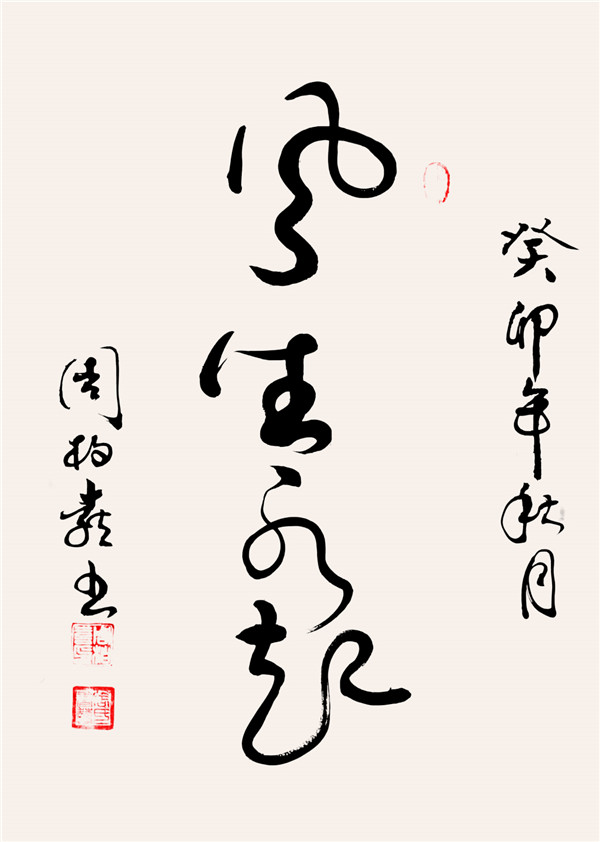 癸卯年秋月
风生水起
周书